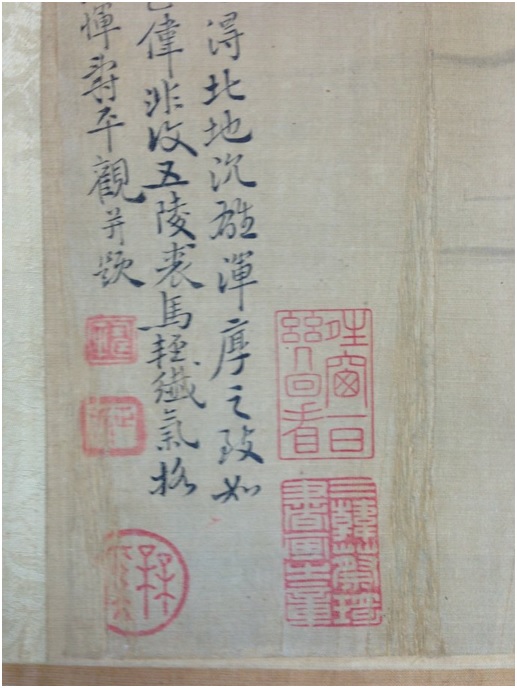 得北地沉雄渾厚之致如
偉非復五陵裘馬輕纖氣格
惲壽平觀并題
晴窗一日幾回看
三韓蔡琦書畫之章